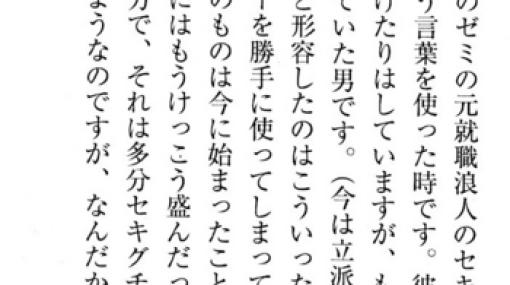 のゼミの元就職浪人のセキ
う言葉を使った時です。彼
けたりはしていますが、も
ていた男です。（今は立派
と形容したのはこういった
ーを勝手に使ってしまって
のものは今に始まったこと
にはもうけっこう盛んだっ
分で、それは多分セキグチ
ようなのですが、なんだか